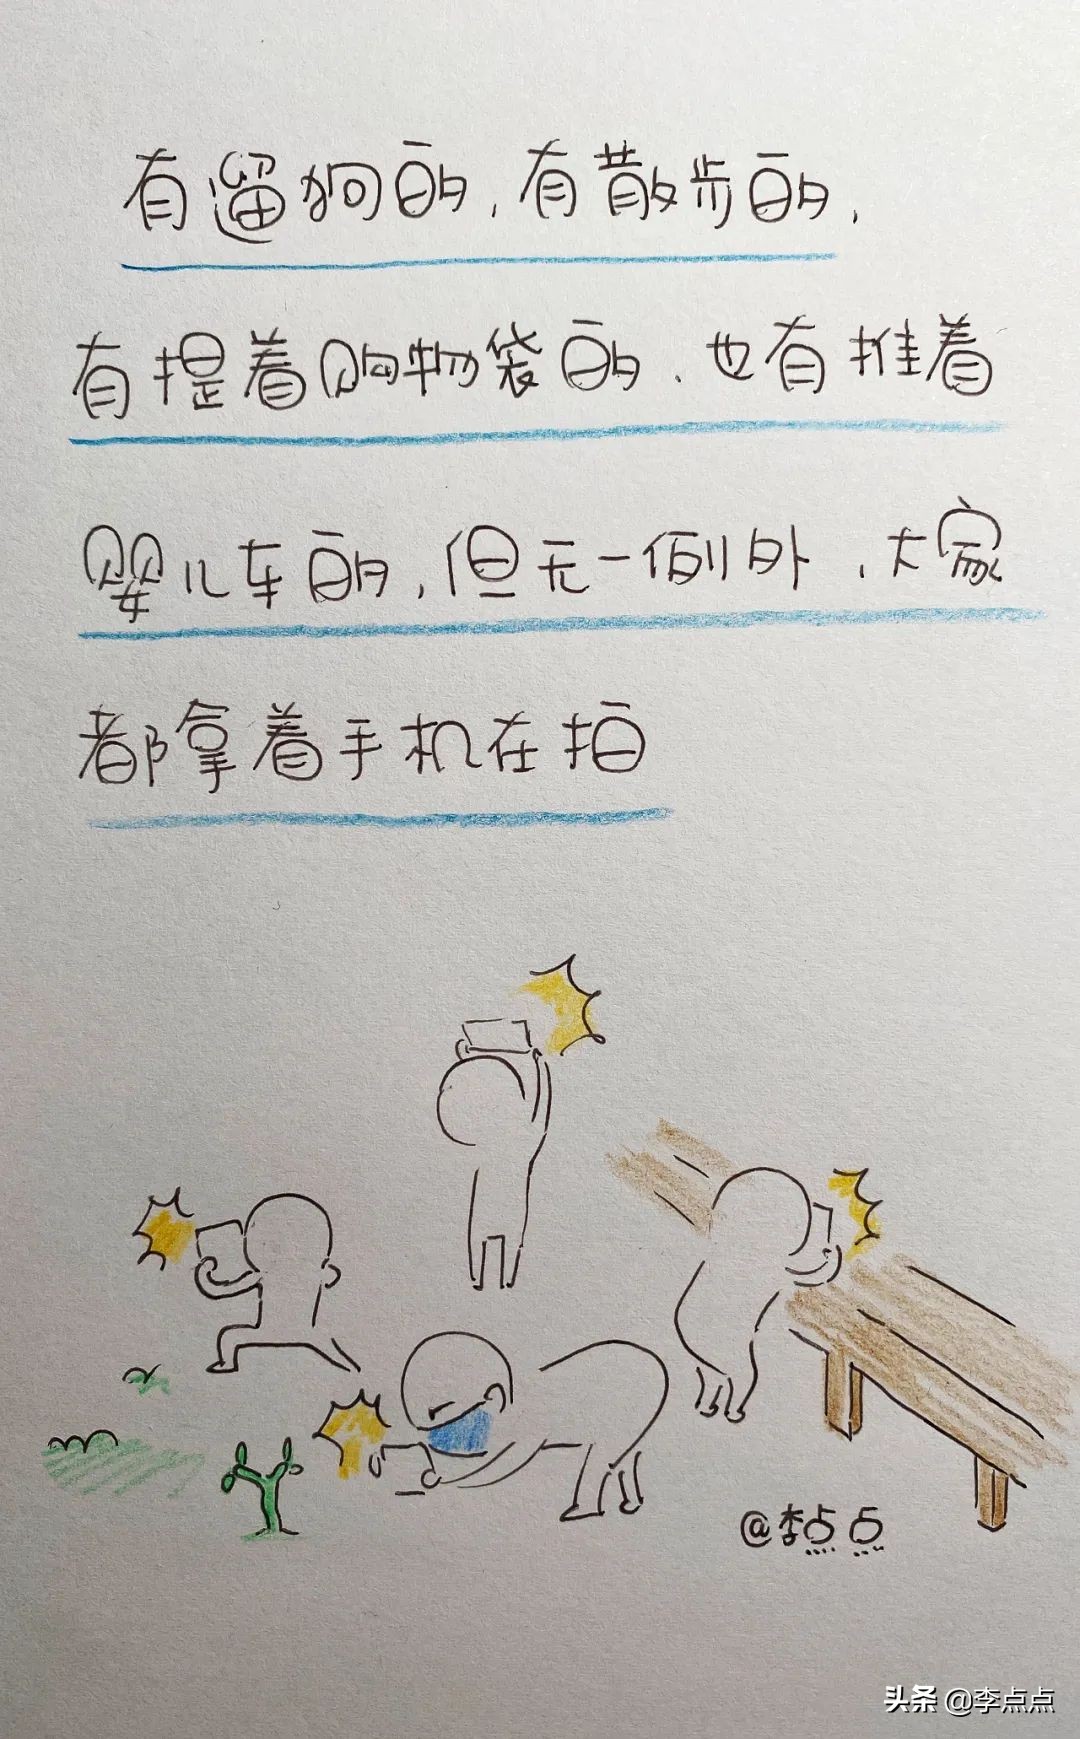 有遛狗的,有散步的,
有提着购物袋的,也有推着
婴儿车的,但无一例外,大家
都拿着手机在拍
@李点点
头条 @李点点